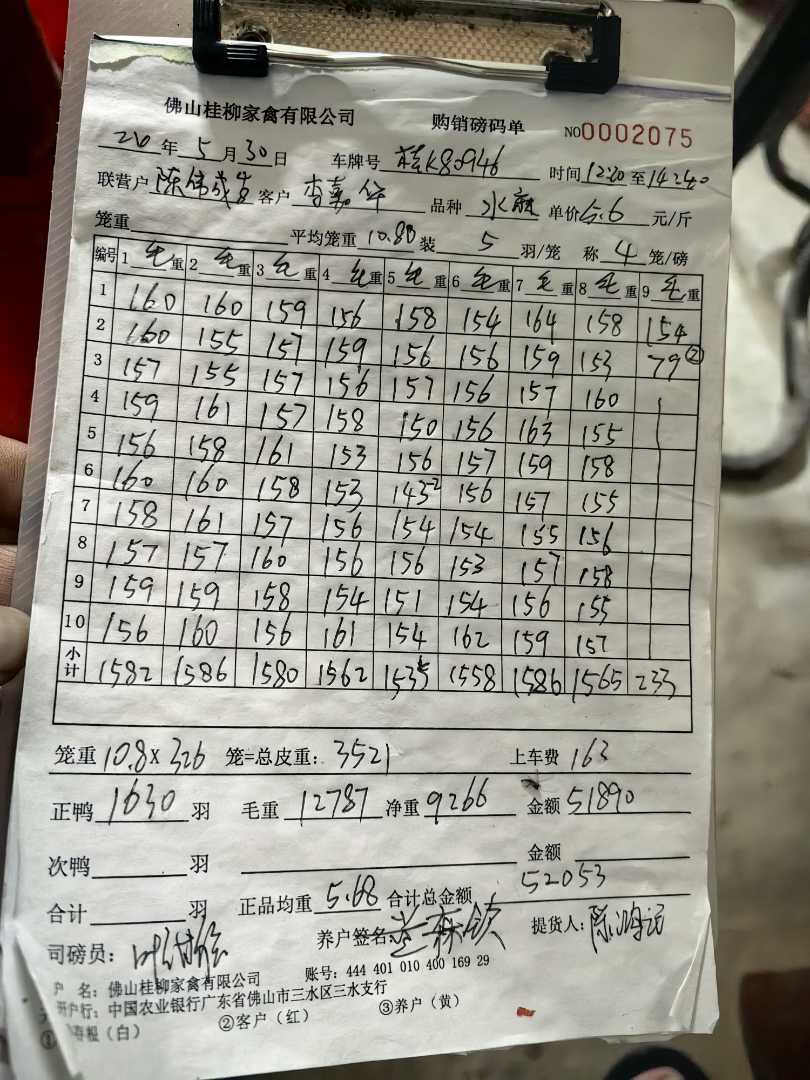 佛山桂柳家禽有限公司 购销磅码单 NO0002075
年 5 月 30 日 车牌号 桂K80946 时间 12:20 至 14:40
联营户 陈伟成 客户 李嘉华 品种 水麻 单价 5.6 元/斤
笼重 平均笼重 10.80 装 5 羽/笼 称 4 笼/磅
编号 1 毛重 2 毛重 3 毛重 4 毛重 5 毛重 6 毛重 7 毛重 8 毛重 9 毛重
1 160 160 159 156 158 154 164 158 154
2 160 155 157 159 156 156 159 153 79②
3 157 155 157 156 157 156 157 160
4 159 161 157 158 150 156 163 155
5 156 158 161 153 156 157 159 158
6 160 160 158 153 143² 156 157 155
7 158 161 157 156 154 154 155 156
8 157 157 160 156 156 153 157 158
9 159 159 158 154 151 154 156 155
10 156 160 156 161 154 162 159 157
小计 1582 1586 1580 1562 1535 1558 1586 1565 233
笼重 10.8 x 326 笼=总皮重: 3521 上车费 163
正鸭 1630 羽 毛重 12787 净重 9266 金额 51890
次鸭 羽 金额
合计 羽 正品均重 5.68 合计总金额 52053
司磅员: 养户签名: 提货人:
户 名: 佛山桂柳家禽有限公司 账号: 444 401 010 400 169 29
开户行: 中国农业银行广东省佛山市三水区三水支行
存根(白) ②客户(红) ③养户(黄)